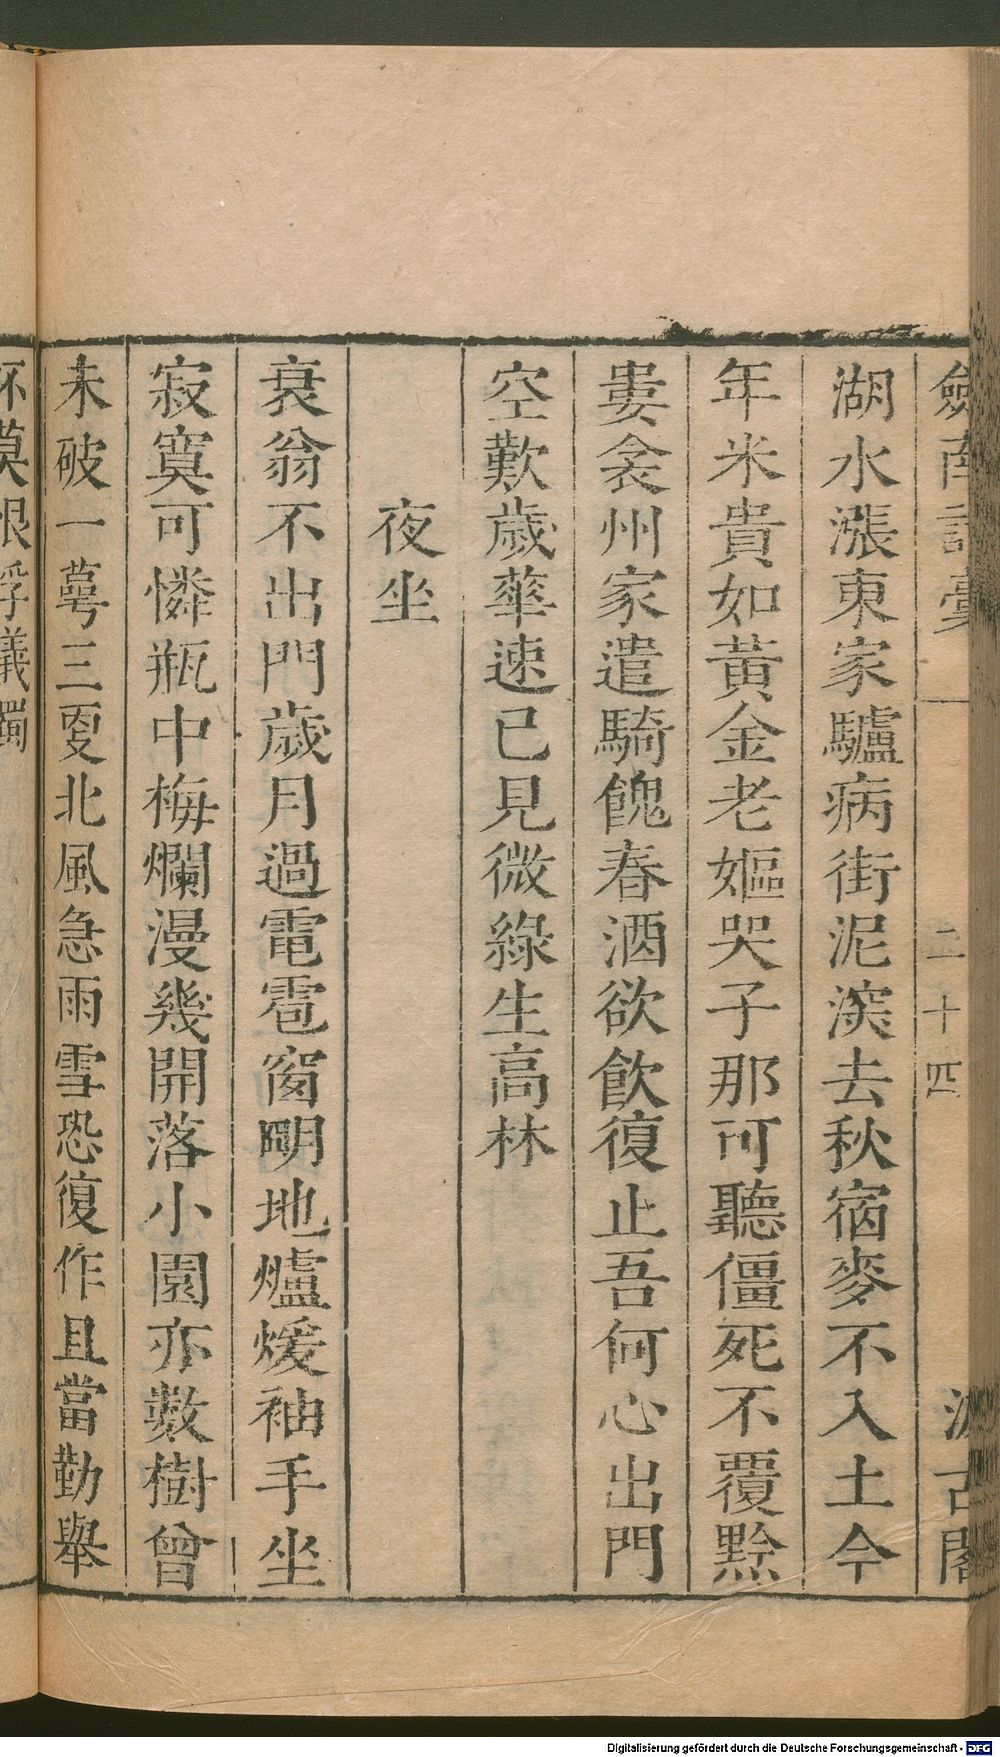 劒南詩稾
二十四
汲古閣
湖水漲東家驢病街泥深去秋宿麥不入土今
年米貴如黃金老嫗哭子那可聽僵死不覆黔
婁衾州家遣騎餽春酒欲飮復止吾何心出門
空歎歲華速已見微綠生高林
夜坐
衰翁不出門歲月過電雹窗明地爐煖袖手坐
寂寞可憐瓶中梅爛漫幾開落小園亦數樹曾
未破一萼三更北風急雨雪恐復作且當勤舉
杯莫恨浮蟻濁
Digitalisierung gefördert durch die Deutsche Forschungsgemeinschaft - DFG